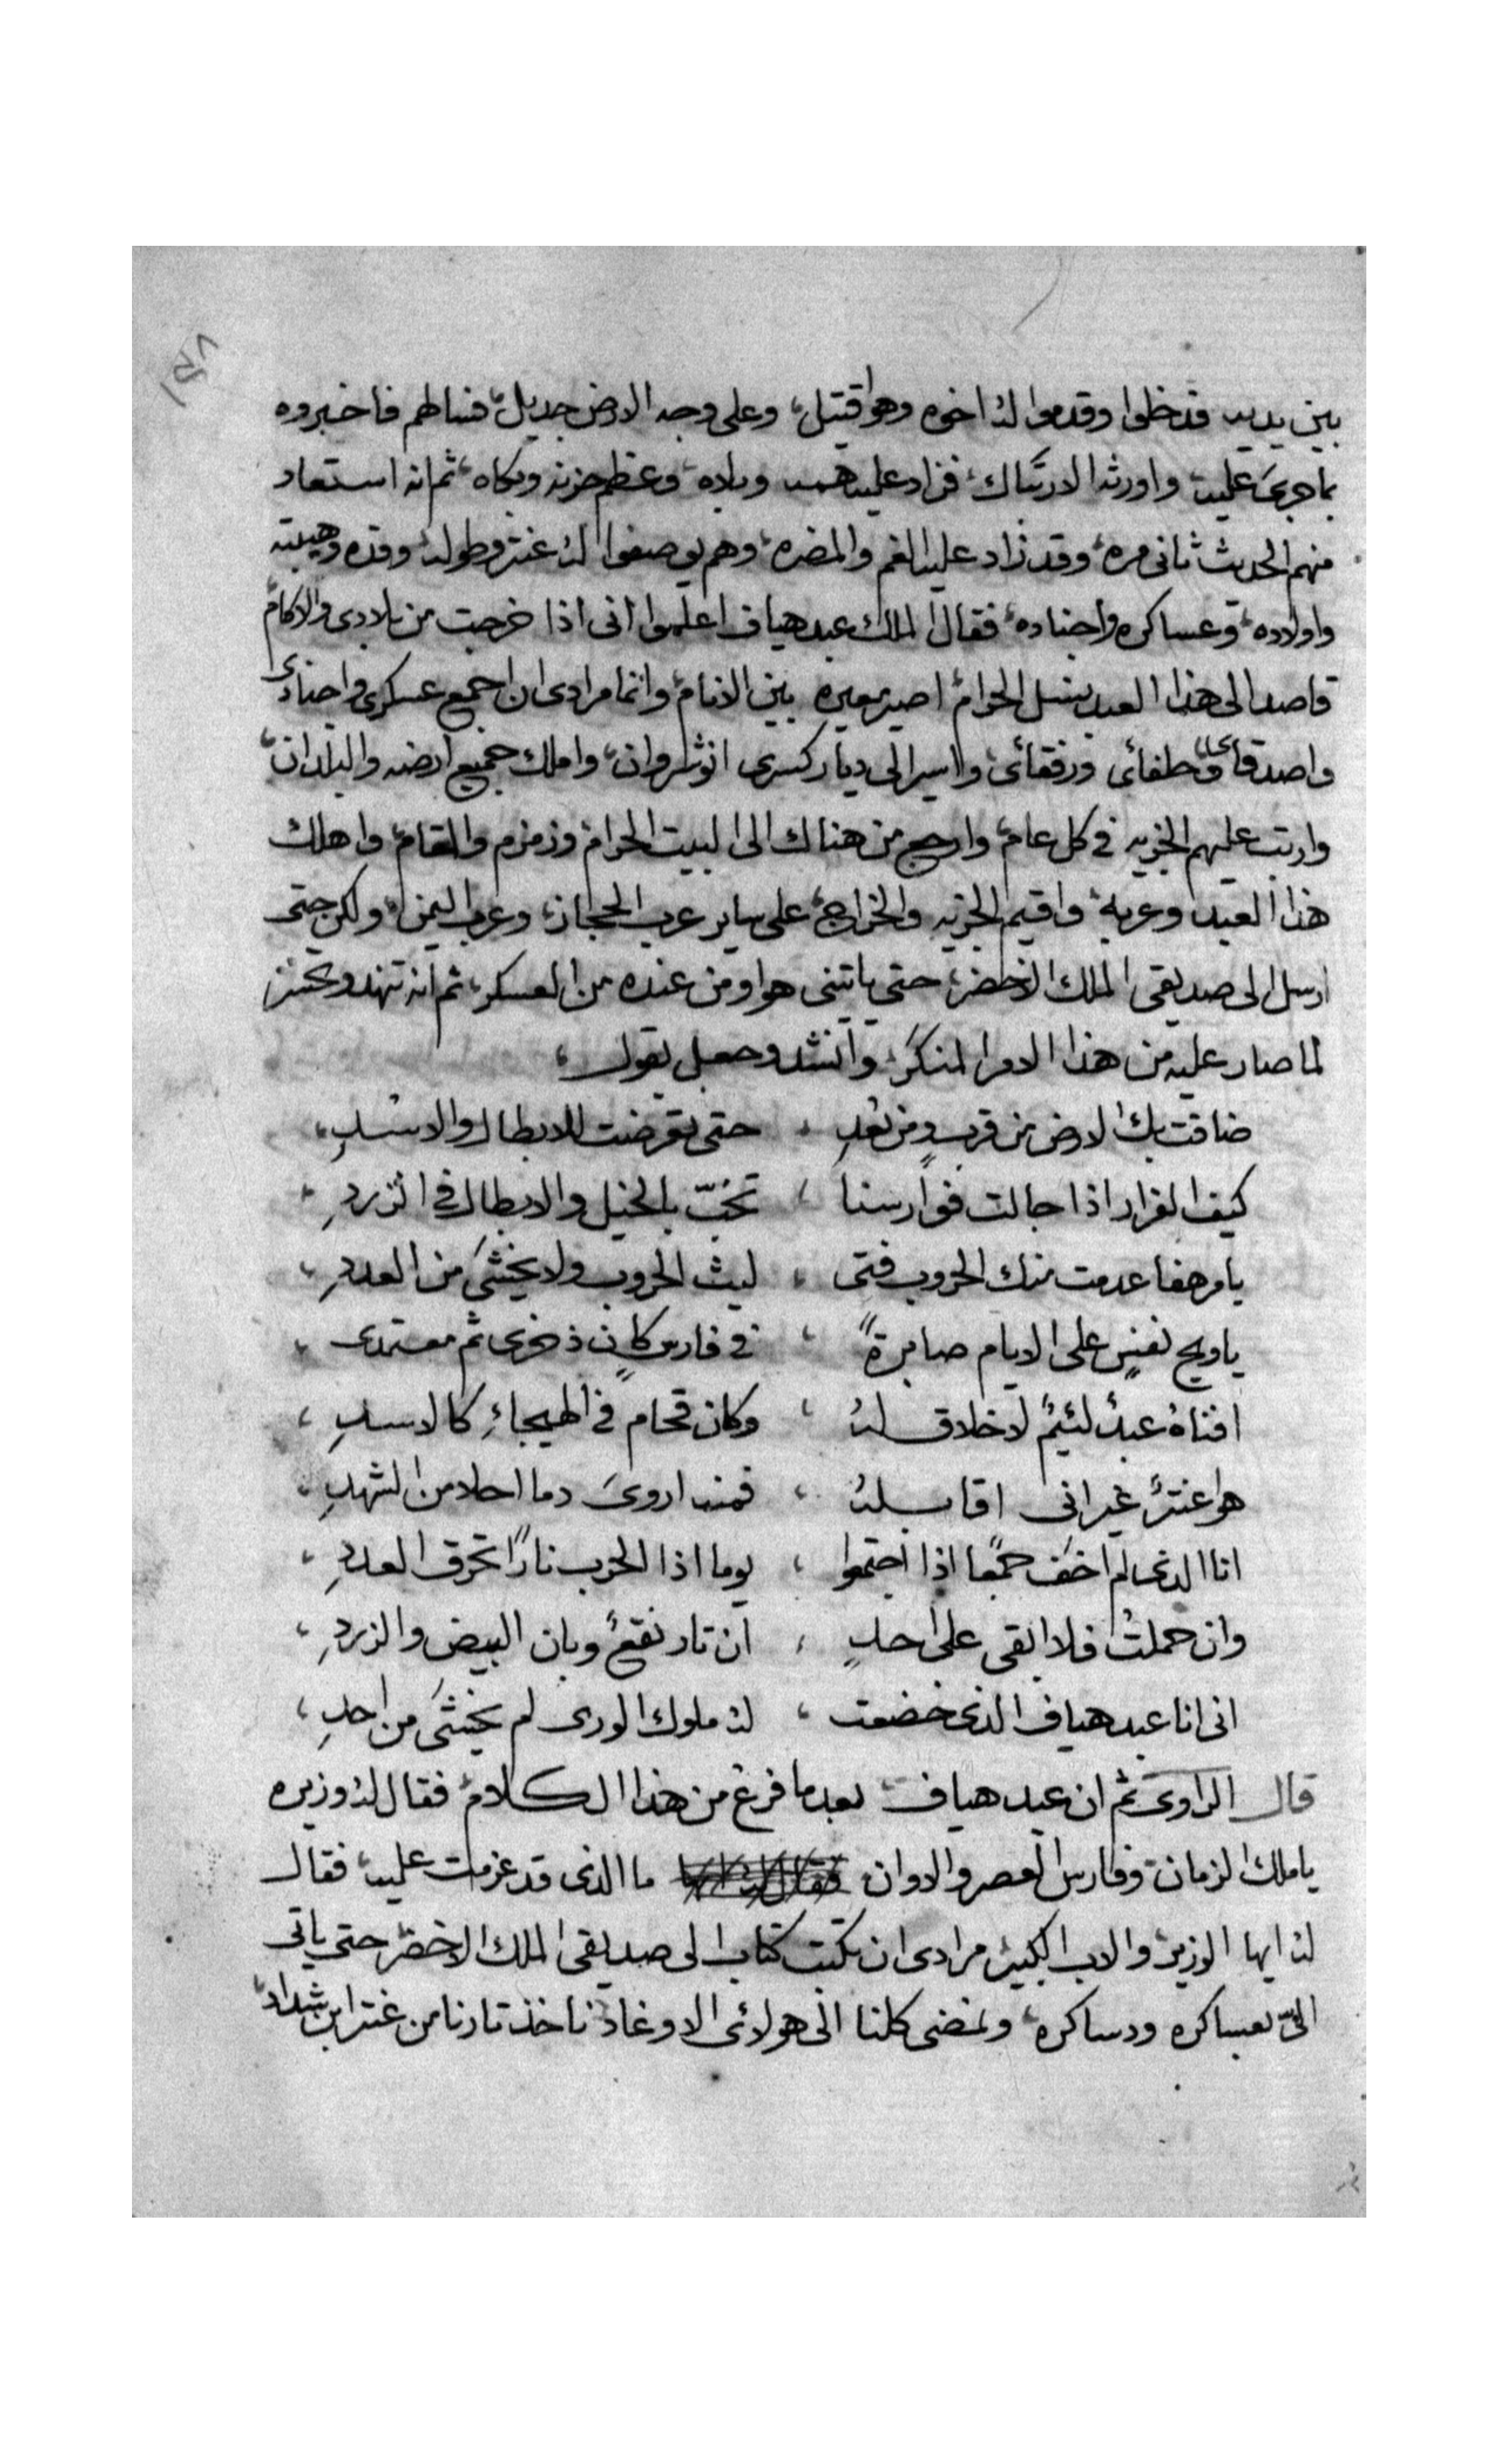 بين يديه فدخلوا وقدموا له اخوه وهو قتيل، وعلى وجه الارض جديل، فسالهم فاخبروه
بما جرى عليه واورثه الارتباك، فزاد عليه همه وبلاه، وعظم حزنه وبكاه، ثم انه استعاد
منهم الحديث ثانى مره، وقد زاد عليه الغم والمضره، وهم يوصفوا له عنتر وطوله، وقده وهيبته
واولاده، وعساكره واجناده، فقال الملك عبد هياف اعلموا انى اذا خرجت من بلادى والاكام
قاصد الى هذا العبد نسل الحرام، اصير معيره بين الانام، وانما مرادى ان اجمع عسكرى واجنادى
واصدقاى وحلفائى ورفقائى، واسير الى ديار كسرى انوشروان، واملك جميع ارضه والبلدان،
وارتب عليهم الجزيه فى كل عام، وارجع من هناك الى البيت الحرام وزمزم والمقام، واهلك
هذا العبد وعربه، واقيم الجزيه والخراج، على ساير عرب الحجاز، وعرب اليمن، ولكن حتى
ارسل الى صديقى الملك الاخضر، حتى ياتينى هوا ومن عنده من العسكر، ثم انه تنهد وتحسر
لما صار عليه من هذا الامر المنكر، وانشد وجعل يقول،
ضاقت بك الارض من قربٍ ومن بُعدِ ، حتى تعرضت للابطال والاسدِ،
كيف الفرار اذا جالت فوارسنا ، تخبّ بالخيل والابطال فى الزردِ،
يا مرهفا عدمت منك الحروب فتى ، ليث الحروب ولا يخشى من العددِ،
يا ويح نفسٍ على الايام صابرةً ، فى فارس كان ذخرى ثم معتمدى،
افناهُ عبدٌ لئيمٌ لا خلاق لهُ ، وكان قحام فى الهيجاءِ كالاسدِ،
هوا عنترٌ غير انى اقابلهُ ، فمنه اروى دما احلا من الشهدِ،
انا الذى لم اخف جمعًا اذا اجتمعوا ، يوما اذا الحرب نارًا تحرق العددِ،
وان حملتُ فلا ابقى على احدٍ ، ان تار نقعٌ وبان البيض والزردِ،
انى انا عبد هياف الذى خضعت ، له ملوك الورى لم يخشى من احدِ،
قال الراوى ثم ان عبد هياف بعدما فرغ من هذا الكلام، فقال له وزيره
يا ملك الزمان، وفارس العصر والاوان ما الذى قد عزمت عليه، فقال
له ايها الوزير، والاب الكبير، مرادى ان نكتب كتاب الى صديقى الملك الاخضر، حتى ياتى
الىّ بعساكره ودساكره، ونمضى كلنا الى هولائى الاوغاد، ناخذ تارنا من عنتر ابن شداد،